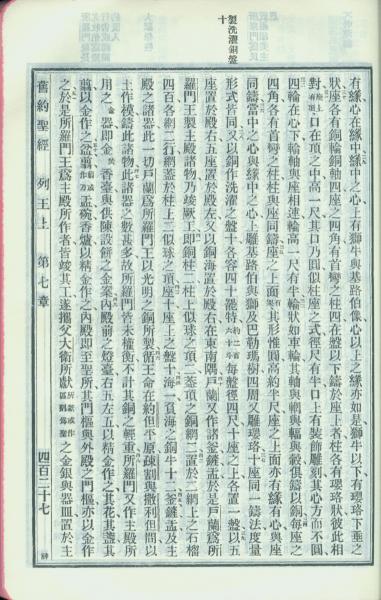 製洗濯銅盤十
有緣心在緣中緣之心上有獅牛與基路伯像心以上之緣亦如是獅牛以下有瓔珞下垂之
狀座各有銅輪銅軸四座之四角有首彎之柱四在盤以下鑄於座上者柱各有瓔珞狀彼此相
對座上有口在頂之中高一尺其口乃圓似柱座之式徑尺有半口上有裝飾雕刻其心方而不圓
四輪在心下輪軸與座相連輪高一尺有半輪狀如車輪其軸與輞與輻與轂俱鑄以銅每座之
四角各有首彎之柱柱與座同鑄座之上面其形惟圓高約半尺座之上面亦有緣有心與座
同鑄當中之心與緣中之心上雕基路伯與獅及巴勒瑪樹四周又雕瓔珞十座同一鑄法度量
形式皆同又以銅作洗濯之盤十各容四十罷特約二百六十斗每盤徑四尺十座之上各置一盤以五
座置於殿右五座置於殿左又以銅海置於殿右在東南隅戶蘭又作諸釜鏟盂於是戶蘭為所
羅門王製主殿諸物乃竣厥工即銅柱二柱上似球之頂二蓋頂之銅網二置於二網上之石榴
四百各網二行網蓋於柱上二似球之頂座十座上之盤十海一負海之銅牛十二釜鏟盂及主
殿之諸器此一切戶蘭為所羅門王以光明之銅所製循王命在約但平原疎割與撒利但間以
土作模鑄此諸物此諸器之數甚多故所羅門皆未權衡不計其銅之輕重所羅門又作主殿所
用之金器即金香臺與供陳設餅之金案內殿前之燈臺右五左五以精金作之其花其盞其
翦以金作之盆翦盂碗香爐以精金作之內殿即至聖所其門樞與外殿之門樞亦以金作
之於是所羅門王為主殿所作者皆竣其工遂攜父大衛所獻之金銀與器皿置於主
舊約聖經 列王上 第七章 四百二十七